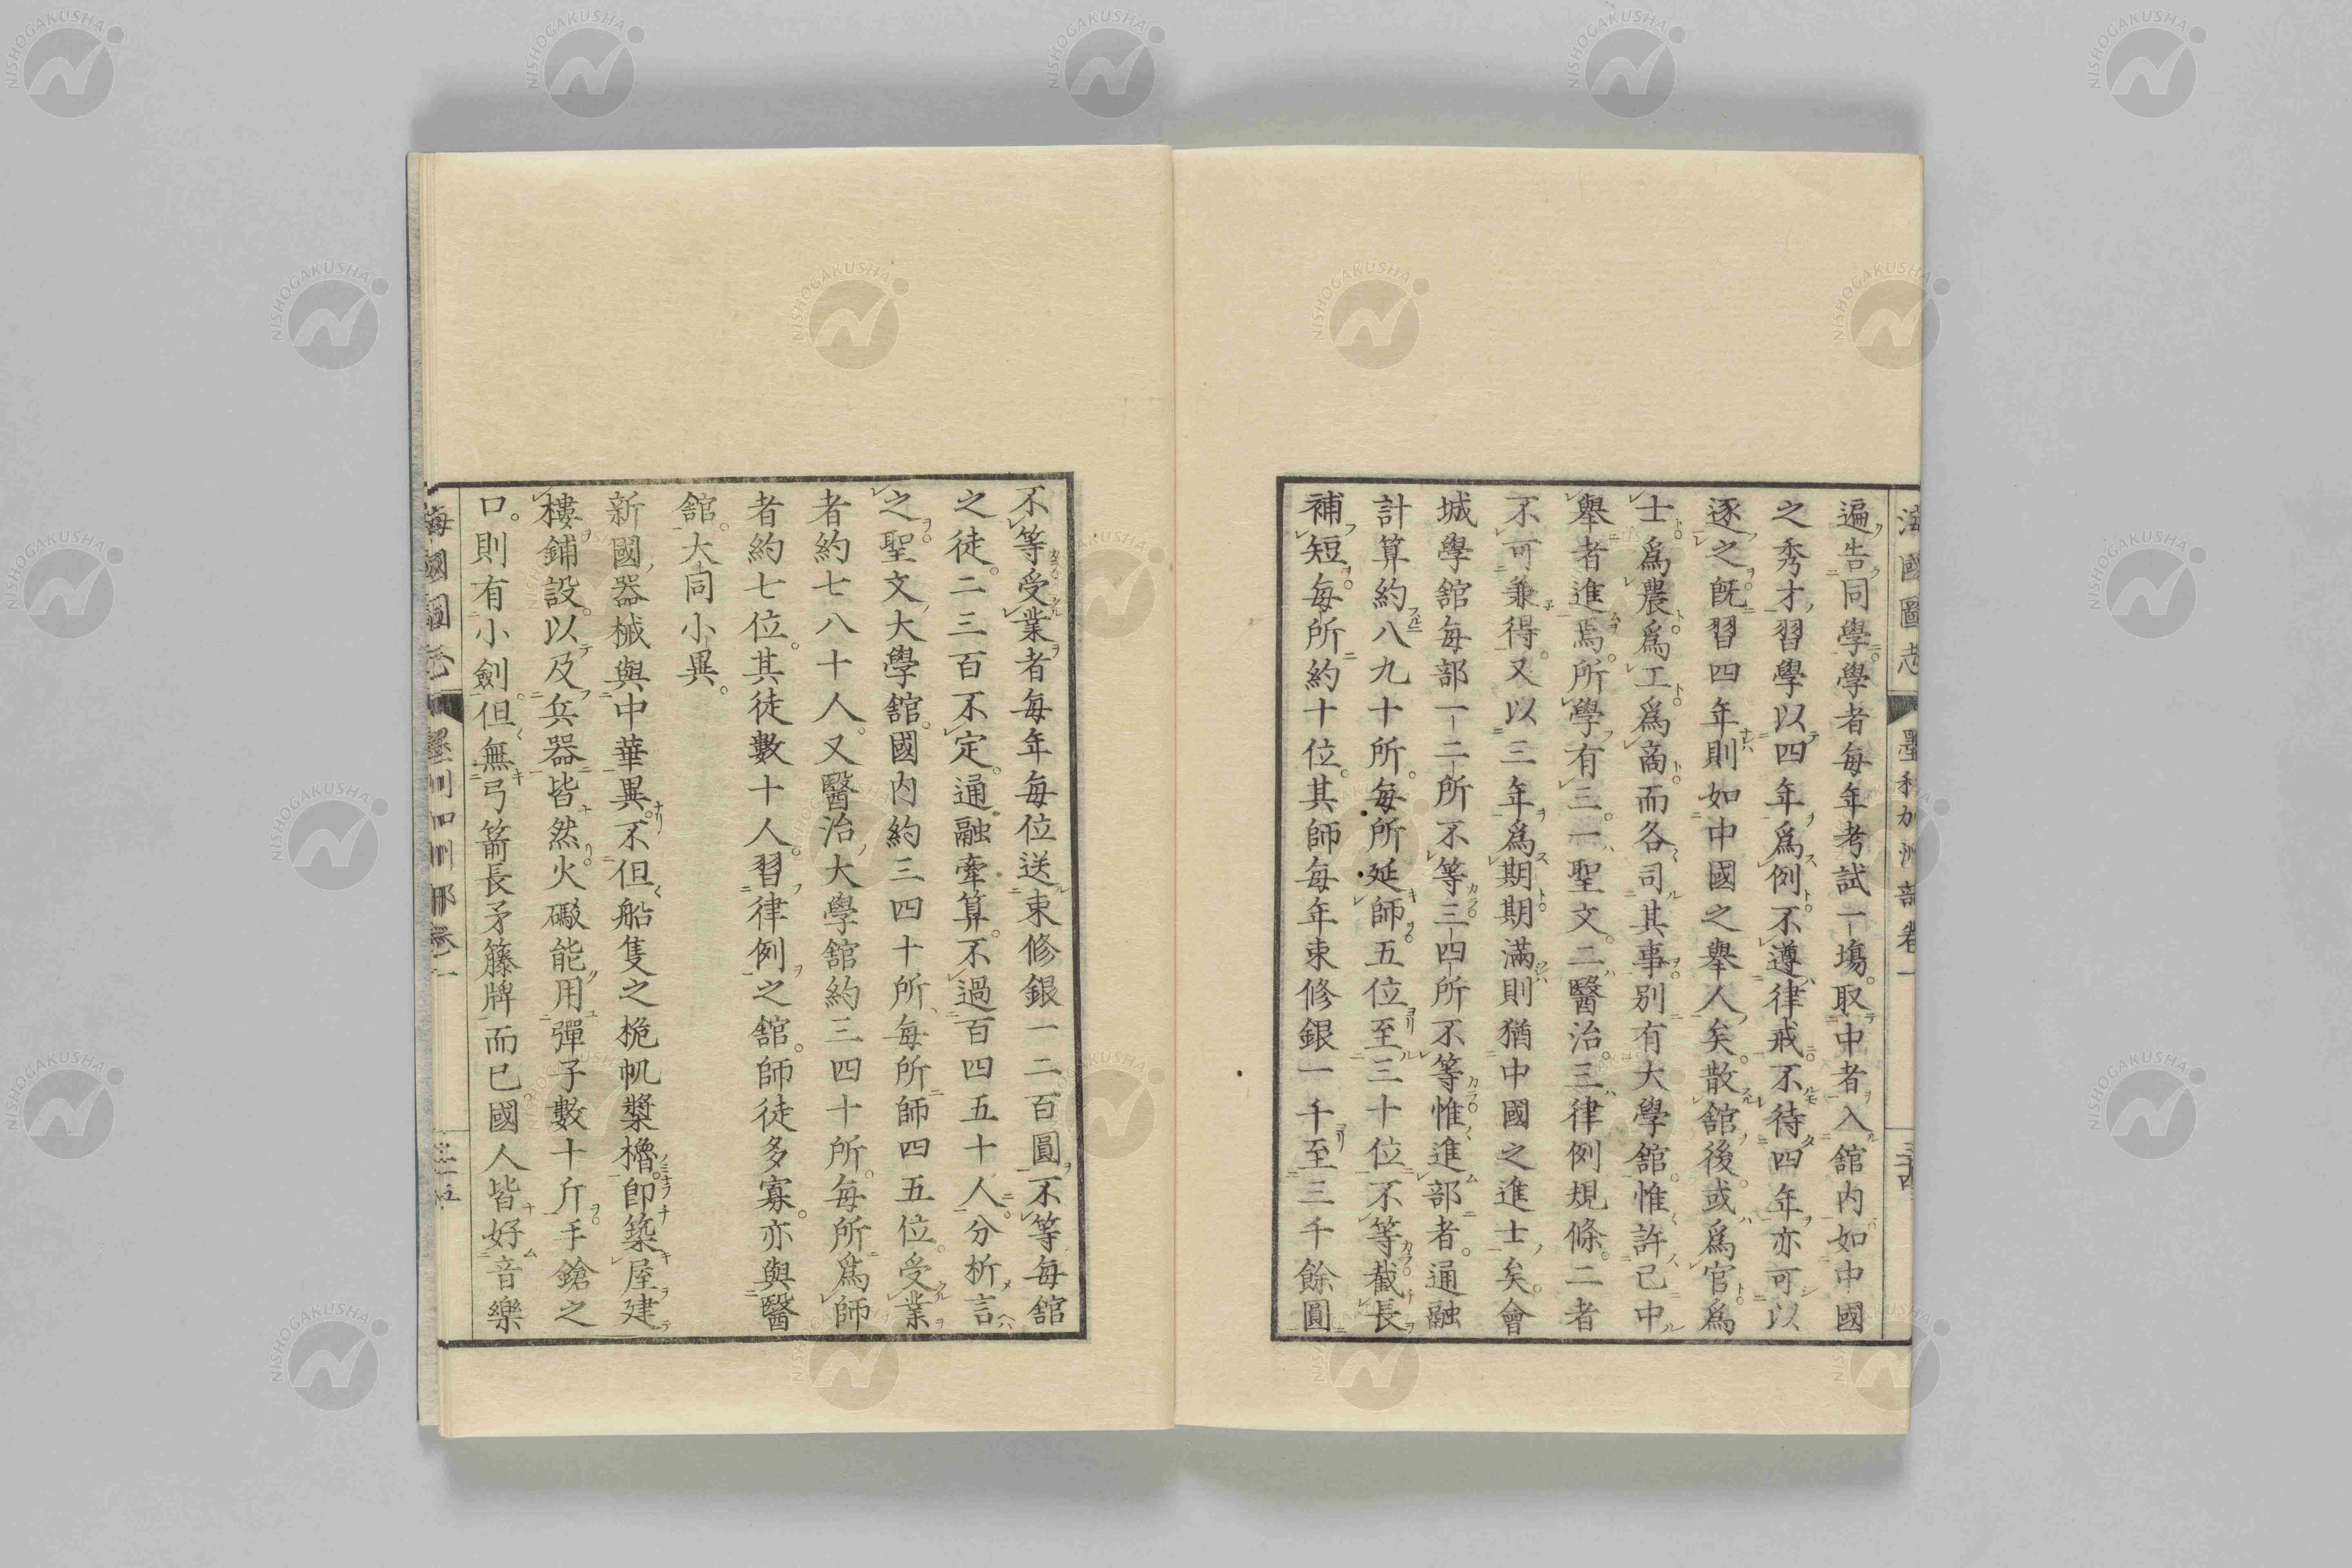 海國圖志 墨利加洲部卷一 三十四
遍告同學學者每年考試一塲。取中者入舘內如中國
之秀才習學以四年爲例不遵律戒不待四年亦可以
逐之旣習四年則如中國之舉人矣。散舘後。或爲官爲
士爲農爲工爲商而各司其事別有大學舘。惟許已中
舉者進焉。所學有三。一聖文。二醫治。三律例規條。二者
不可兼得。又以三年爲期期滿則猶中國之進士矣。會
城學舘每部一二所不等三四所不等惟進部者。通融
計算約八九十所。每所延師五位至三十位不等截長
補短。每所約十位。其師每年束修銀一千至三千餘圓
不等受業者每年每位送束修銀一二百圓不等每舘
之徒。二三百不定。通融牽算。不過百四五十人。分析言
之聖文大學舘。國內約三四十所、每所師四五位。受業
者約七八十人。又醫治大學舘約三四十所。每所爲師
者約七位。其徒數十人。習律例之舘。師徒多寡。亦與醫
舘。大同小異。
新國器械與中華異。不但船隻之桅帆槳櫓。卽築屋建
樓鋪設。以及兵器皆然火礮能用彈子數十斤手鎗之
口。則有小劍。但無弓箭長矛籐牌而已國人皆好音樂
海國圖志 墨利加洲部卷一 三十五
NISHOGAKUSHA